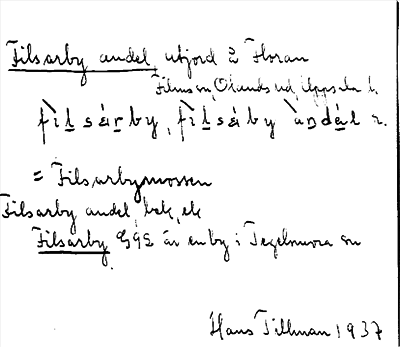 Filsarby andel, utjord å Floran
Films sn, Olands hd, Uppsala l.
fìl sárby, fìlsáby àndál r.
= Filsarbymossen
Filsarby andel, bek, ek
Filsarby GGE är en by i Tegelsmora sn
Hans Tillman 1937